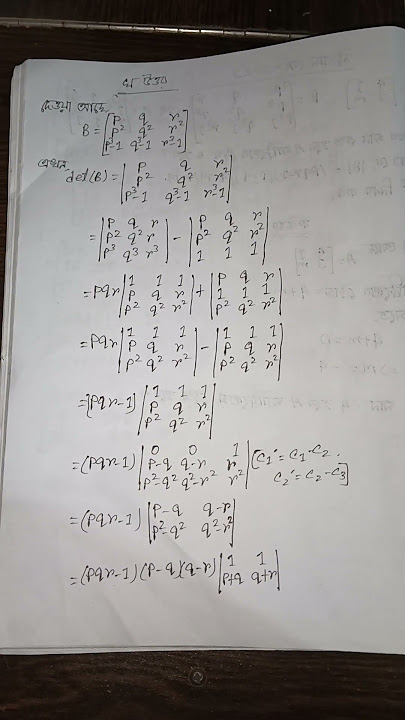 খ উত্তর
দেওয়া আছে,
B = [p q r; p² q² r²; p³-1 q³-1 r³-1]
এখন,
det(B) = |p q r; p² q² r²; p³-1 q³-1 r³-1|
= |p q r; p² q² r; p³ q³ r³| - |p q r; p² q² r²; 1 1 1|
= pqr |1 1 1; p q r; p² q² r²| + |p q r; 1 1 1; p² q² r²|
= pqr |1 1 1; p q r; p² q² r²| - |1 1 1; p q r; p² q² r²|
= (pqr-1) |1 1 1; p q r; p² q² r²|
= (pqr-1) |0 0 1; p-q q-r r; p²-q² q²-r² r²| [C₁' = C₁-C₂, C₂' = C₂-C₃]
= (pqr-1) |p-q q-r; p²-q² q²-r²|
= (pqr-1) (p-q)(q-r) |1 1; p+q q+r|